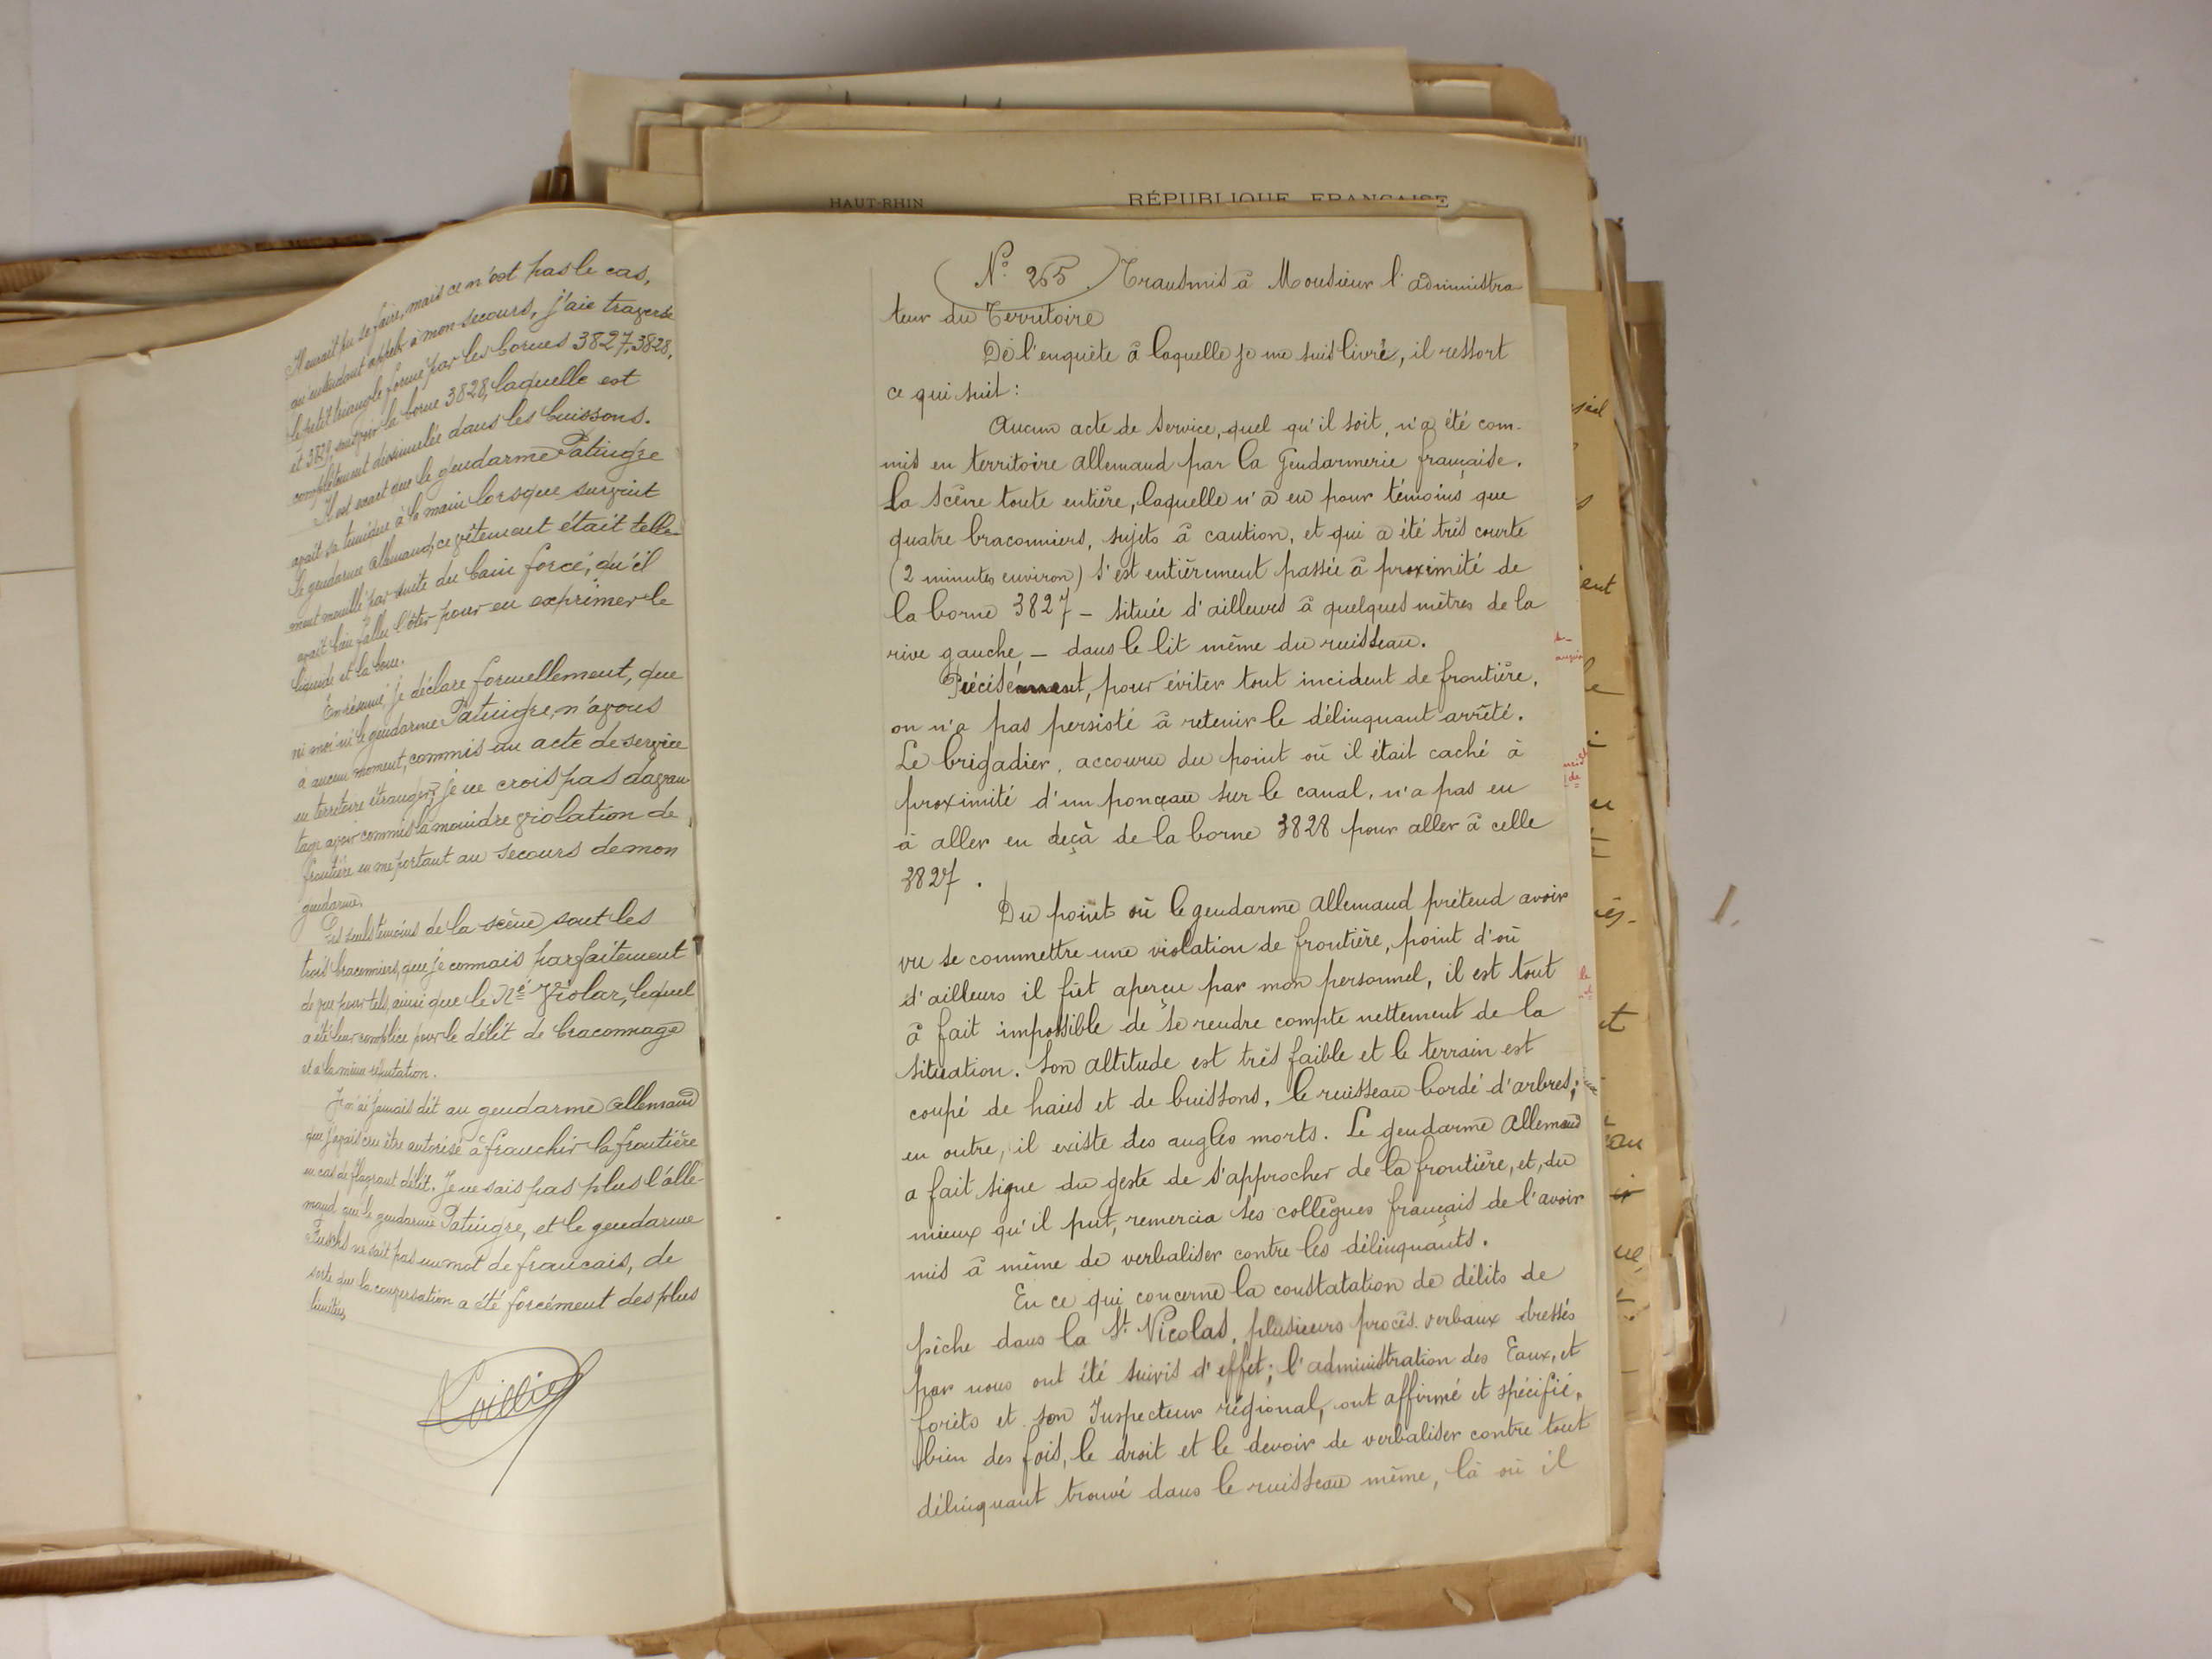 HAUT-RHIN
RÉPUBLIQUE FRANÇAISE
Il aurait pu se faire, mais ce n'est pas le cas,
qu'entendant appeler à mon secours, j'aie traversé
le petit triangle formé par les bornes 3827, 3828,
et 3829, sans voir la borne 3828, laquelle est
complètement dissimulée dans les buissons.
Il est exact que le gendarme Patingre
avait sa tunique à la main lorsque survint
le gendarme allemand; ce vêtement était telle-
ment mouillé par suite du bain forcé, qu'il
avait bien fallu l'ôter pour en exprimer le
liquide et la boue.
En résumé, je déclare formellement, que
ni moi ni le gendarme Patingre, n'avons
à aucun moment, commis un acte de service
en territoire étranger; je ne crois pas davan-
tage avoir commis la moindre violation de
frontière en me portant au secours de mon
gendarme.
Les seuls témoins de la scène sont les
trois braconniers, que je connais parfaitement
de vue pour tels, ainsi que le Né Violar, lequel
a été leur complice pour le délit de braconnage
et a la même réputation.
Je n'ai jamais dit au gendarme Allemand
que j'avais cru être autorisé à franchir la frontière
en cas de flagrant délit. Je ne sais pas plus l'alle-
mand que le gendarme Patingre, et le gendarme
ne sait pas un mot de francais, de
sorte que la conversation a été forcément des plus
limitées
No. 265. Transmis à Monsieur l'administra-
teur du Territoire
De l'enquête à laquelle je me suis livré, il ressort
ce qui suit:
Aucun acte de service, quel qu'il soit, n'a été com-
mis en territoire allemand par la Gendarmerie française.
La scène toute entière, laquelle n'a eu pour témoins que
quatre braconniers, sujets à caution, et qui a été très courte
(2 minutes environ) s'est entièrement passée à proximité de
la borne 3827 - située d'ailleurs à quelques mètres de la
rive gauche, - dans le lit même du ruisseau.
Précisément, pour éviter tout incident de frontière,
on n'a pas persisté à retenir le délinquant arrêté.
Le brigadier, accouru du point où il était caché à
proximité d'un ponceau sur le canal, n'a pas eu
à aller en deçà de la borne 3828 pour aller à celle
3827.
Du point où le gendarme Allemand prétend avoir
vu se commettre une violation de frontière, point d'où
d'ailleurs il fût aperçu par mon personnel, il est tout
à fait impossible de se rendre compte nettement de la
situation. Son altitude est très faible et le terrain est
coupé de haies et de buissons, le ruisseau bordé d'arbres;
en outre, il existe des angles morts. Le gendarme Allemand
a fait signe du geste de s'approcher de la frontière, et, du
mieux qu'il put, remercia ses collègues français de l'avoir
mis à même de verbaliser contre les délinquants.
En ce qui concerne la constatation de délits de
pêche dans la St. Nicolas, plusieurs procès. verbaux dressés
par nous ont été suivis d'effet; l'administration des Eaux, et
forêts et son Inspecteur régional, ont affirmé et spécifié,
bien des fois, le droit et le devoir de verbaliser contre tout
délinquant trouvé dans le ruisseau même, là où il